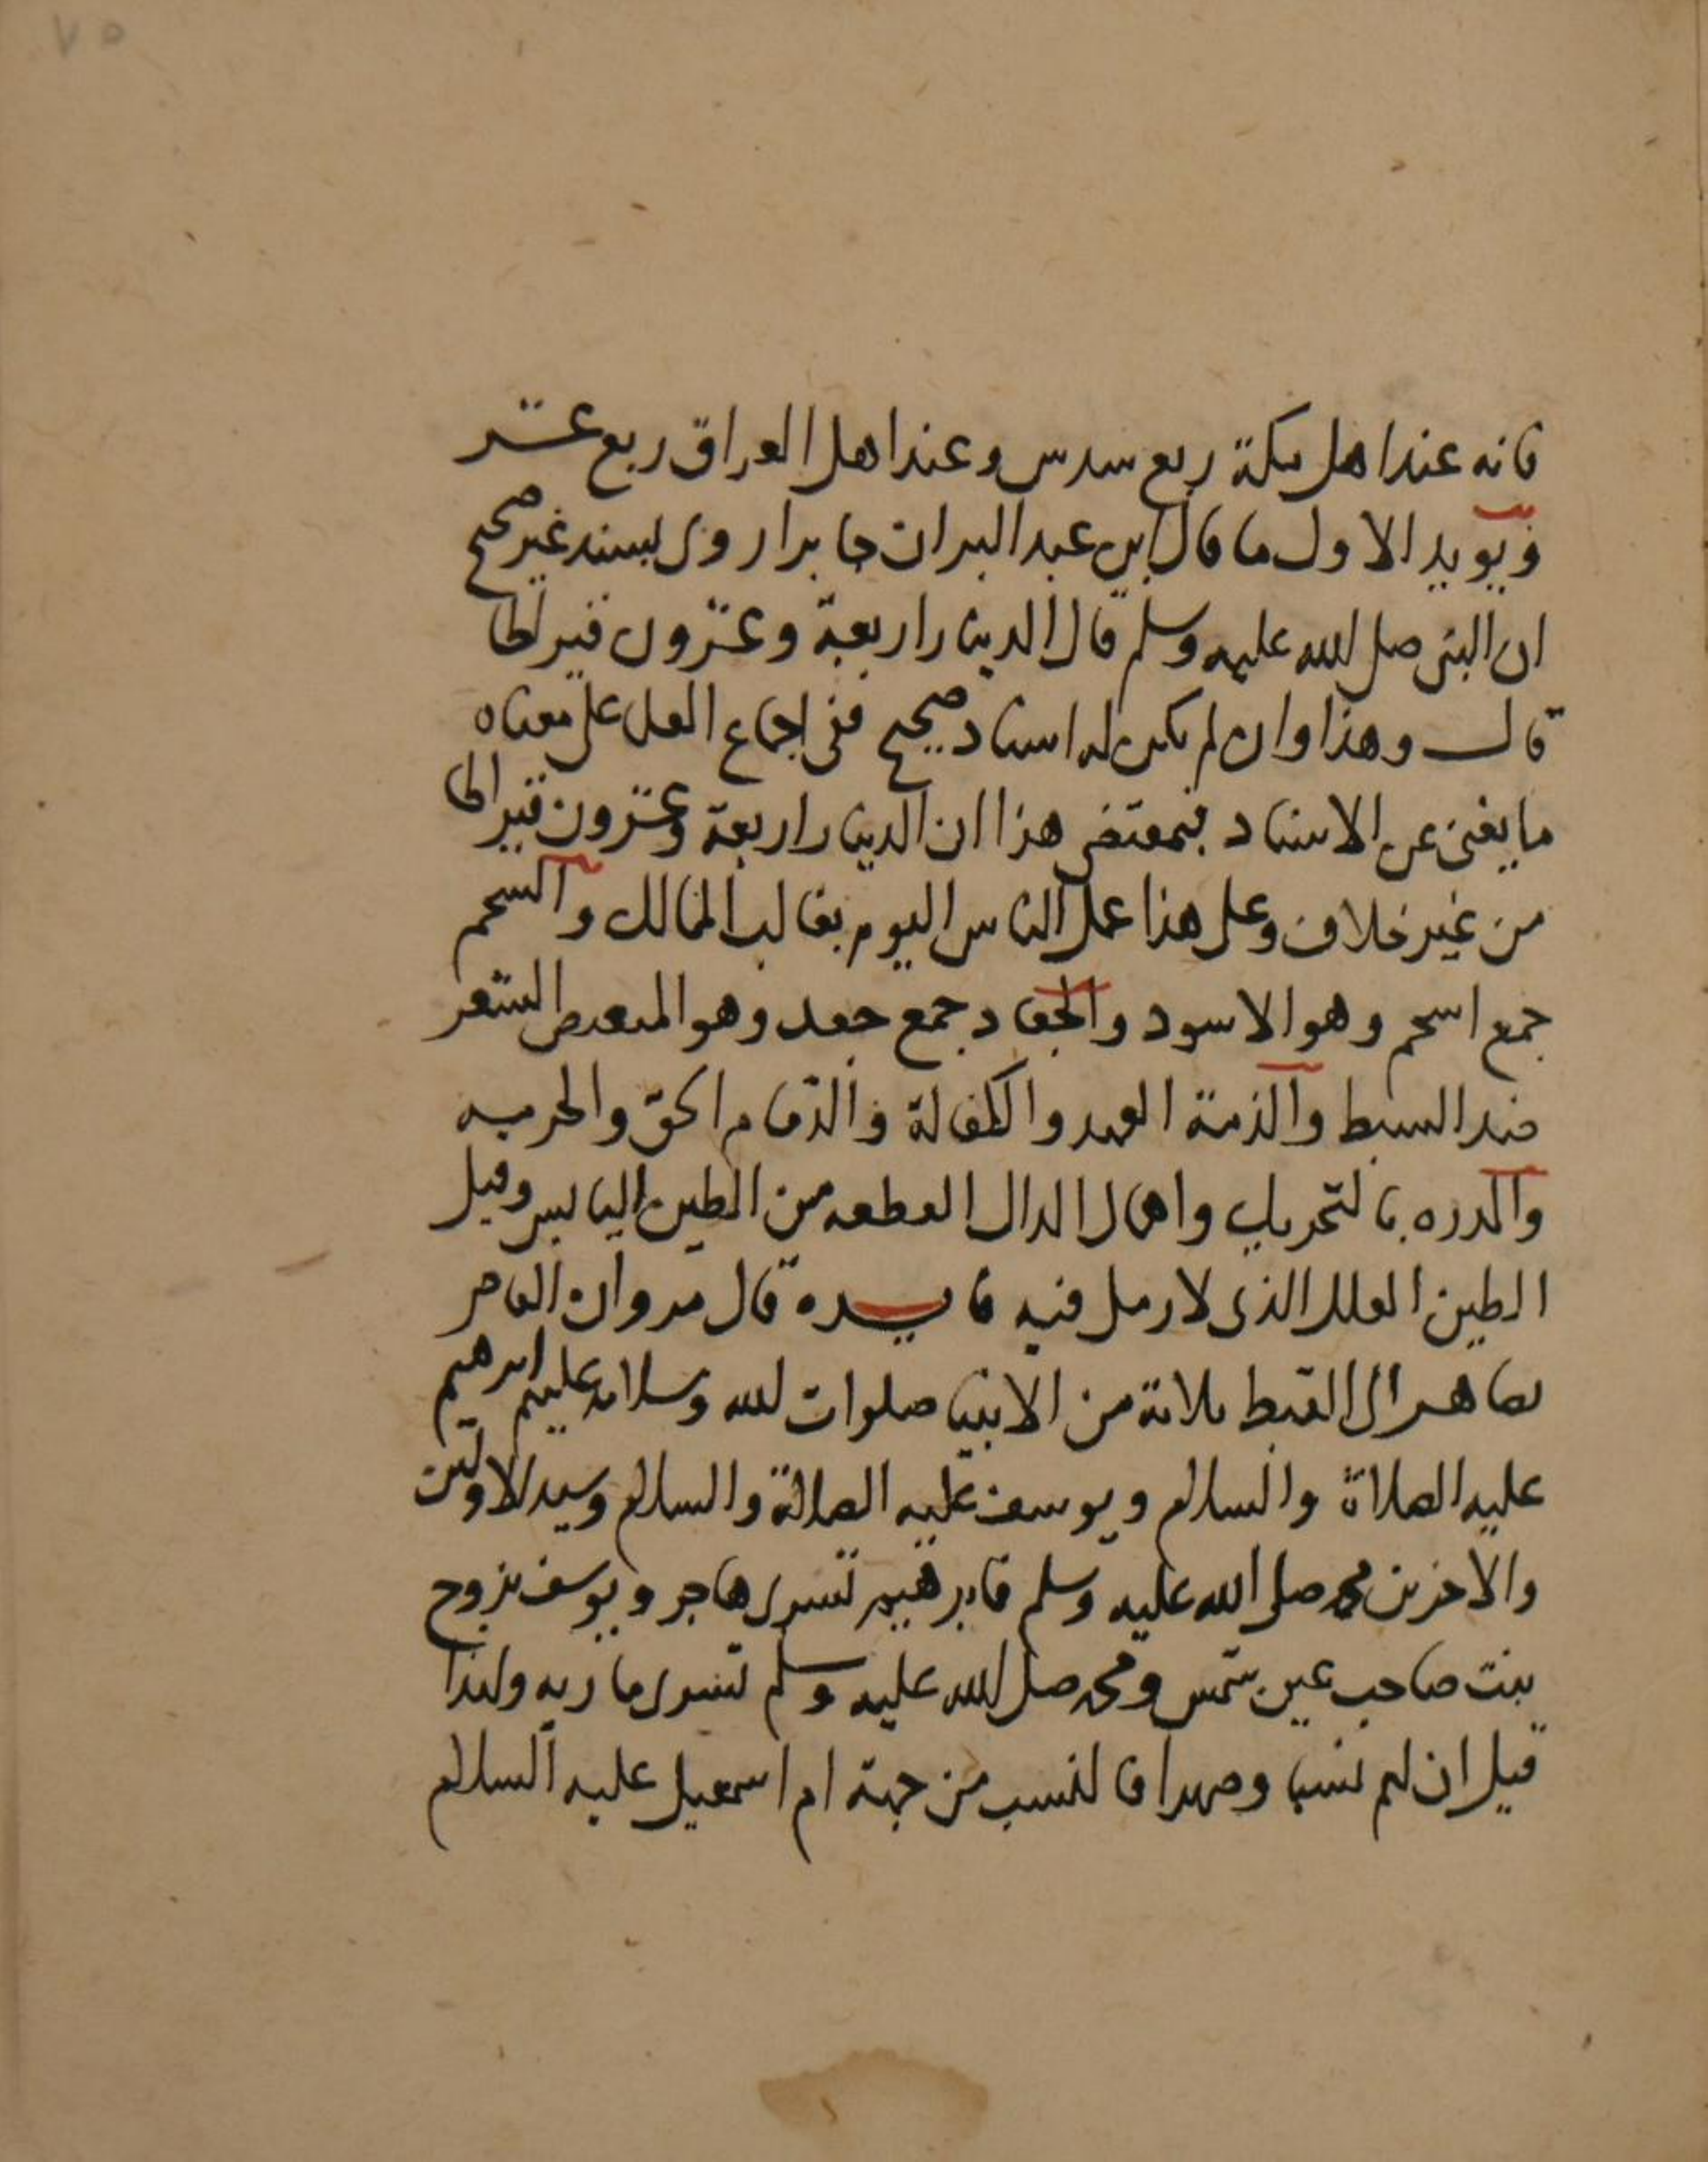 ٧٥
فانه عند اهل مكة ربع سدس وعند اهل العراق ربع عشر
ويويد الاول ما قال ابن عبد البر ان جابرا روى بسند غير صحيح
ان النبى صلى الله عليه وسلم قال الدينار اربعة وعشرون قيراطا
قال وهذا وان لم يكن له اسناد صحيح ففى اجماع العلى على معناه
ما يغنى عن الاسناد فبمقتضى هذا ان الدينار اربعة وعشرون قيراطا
من غير خلاف وعلى هذا عمل الناس اليوم بغالب الممالك والسحم
جمع اسحم وهو الاسود والجعاد جمع جعد وهو المنقبض الشعر
ضد السبط والذمة العهد والكفالة والذمام الحق والحرمه
والمدره بالتحريك واهمال الدال القطعه من الطين اليابس وقيل
الطين العلك الذى لا رمل فيه فايده قال مروان القاصر
صاهر الى القبط ثلاثة من الانبيا صلوات الله وسلامه عليهم ابرهيم
عليه الصلاة والسلام ويوسف عليه الصلاة والسلام وسيد الاولين
والاخرين محمد صلى الله عليه وسلم فابرهيم تسرى هاجر ويوسف تزوج
بنت صاحب عين شمس ومحمد صلى الله عليه وسلم تسرى ماريه ولهذا
قيل ان لهم نسبا وصهرا فالنسب من جهة ام اسمعيل عليه السلام